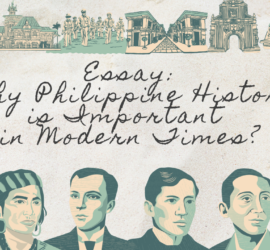 Essay:
hy Philippine Histor
is Important
in Modern Times?